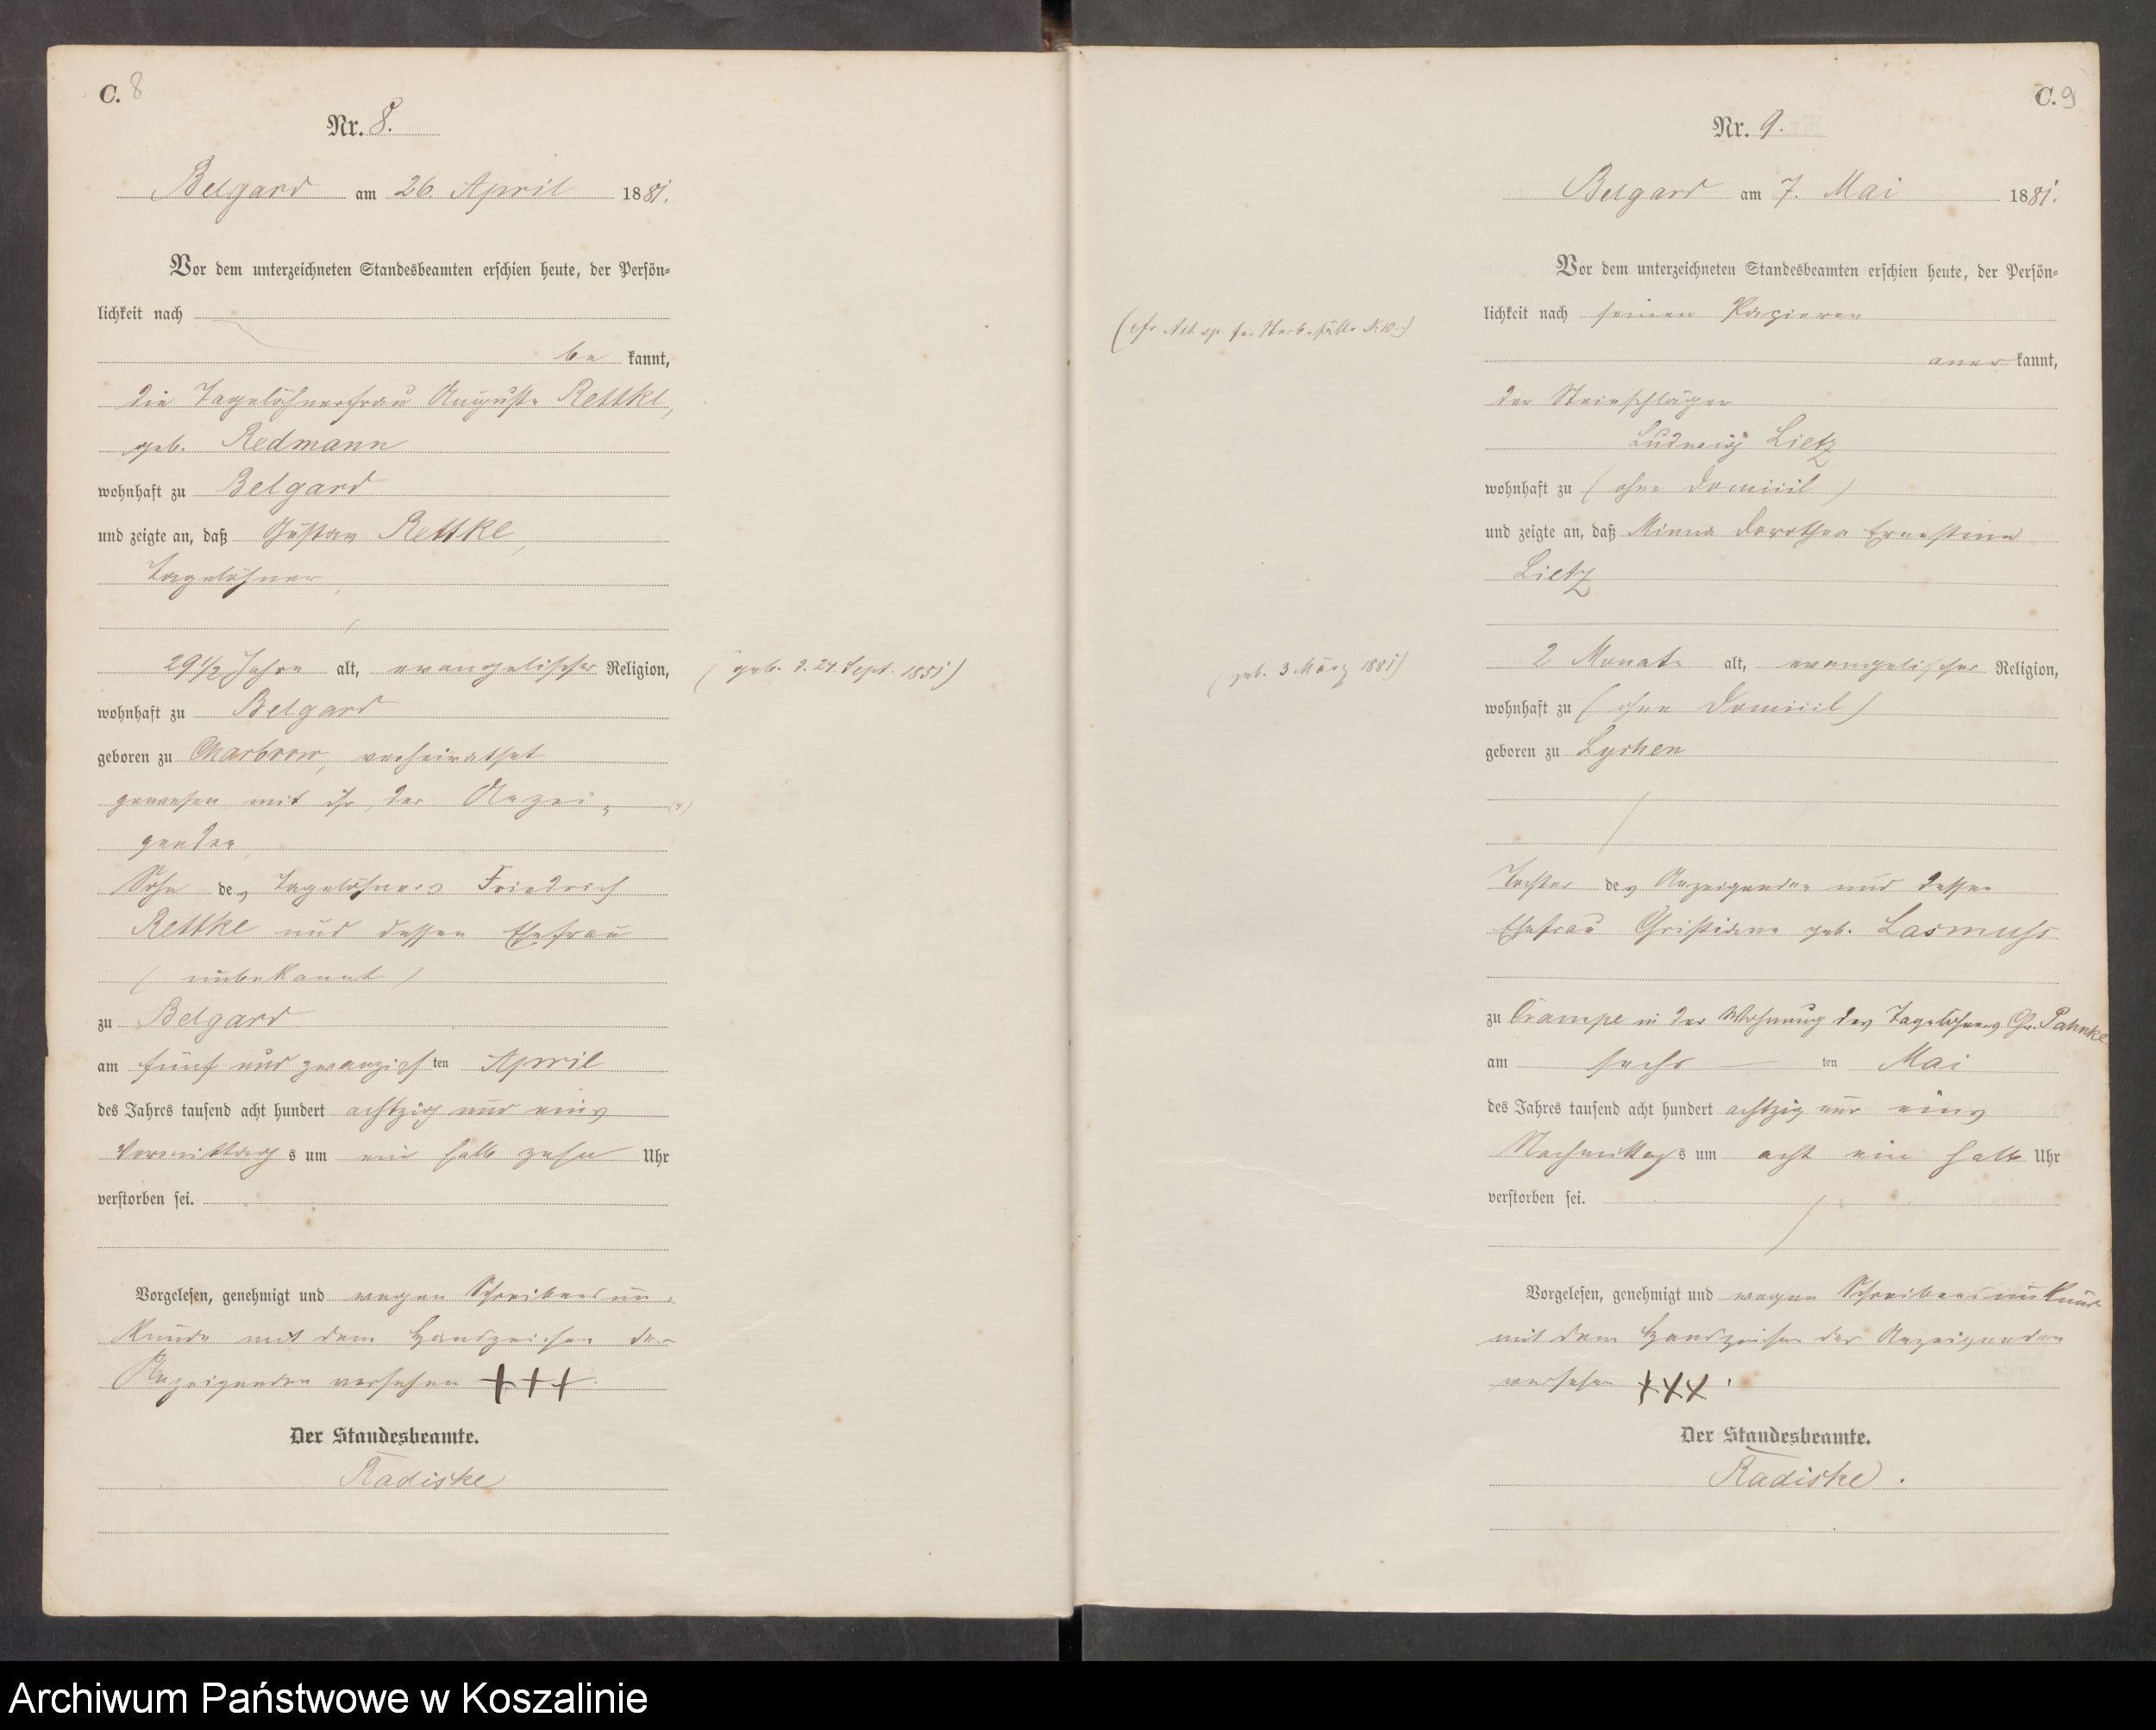 C. 8
Nr. 8.
Belgard am 26. April 1881.
Vor dem unterzeichneten Standesbeamten erschien heute, der Persön=
lichkeit nach
be kannt,
die Tagelöhnerfrau Auguste Rettke,
geb. Redmann
wohnhaft zu Belgard
und zeigte an, daß Gustav Rettke,
Tagelöhner,
29 1/2 Jahre alt, evangelischer Religion,
(geb. d. 24. Sept. 1851)
wohnhaft zu Belgard
geboren zu Charbrow, verheirathet
gewesen mit ihr, der Anzei=
genden,
Sohn des Tagelöhners Friedrich
Rettke und dessen Ehefrau
(unbekannt)
zu Belgard
am fünf und zwanzigsten April
des Jahres tausend acht hundert achtzig und eins
Vormittags um ein halb zehn Uhr
verstorben sei.
Vorgelesen, genehmigt und wegen Schreibensun=
kunde mit dem Handzeichen der
Anzeigenden versehen +++.
Der Standesbeamte.
Radiske
C. 9
Nr. 9.
Belgard am 7. Mai 1881.
Vor dem unterzeichneten Standesbeamten erschien heute, der Persön=
lichkeit nach seinen Papieren
aner kannt,
der Steinschläger
Ludwig Lietz
wohnhaft zu (ohne Domicil)
und zeigte an, daß Minna Dorothea Ernestine
Lietz
2 Monate alt, evangelischer Religion,
(geb. 3 März 1881)
wohnhaft zu (ohne Domicil)
geboren zu Lychen
Tochter des Anzeigenden und dessen
Ehefrau Christiane geb. Lasmuhs
zu Crampe in der Wohnung des Tagelöhners Chr. Pahnke
am sechsten Mai
des Jahres tausend acht hundert achtzig und eins
Nachmittags um acht ein halb Uhr
verstorben sei.
Vorgelesen, genehmigt und wegen Schreibensunkunde
mit dem Handzeichen des Anzeigenden
versehen XXX.
Der Standesbeamte.
Radiske.
Archiwum Państwowe w Koszalinie